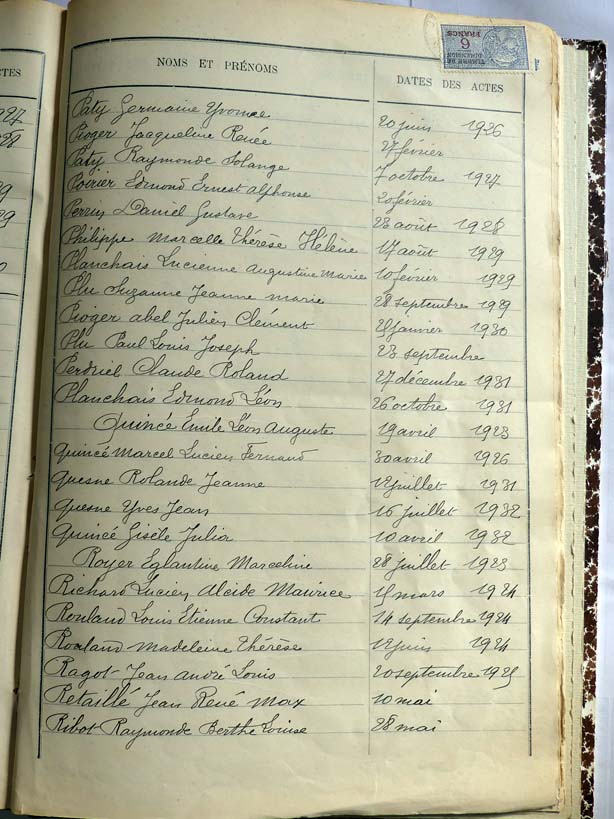 CTES
927
928
NOMS ET PRÉNOMS
DATES DES ACTES
TIMBRE DE DIMENSION
6 FRANCS
Paty Germaine Yvonne 20 juin 1926
Pioger Jacqueline Renée 27 février
Paty Raymonde Solange 7 octobre 1927
Poirier Edmond Ernest Alphonse 20 février
Perrin Daniel Gustave 23 août 1928
Philippe Marcelle Thérèse Hélène 17 août 1929
Planchais Lucienne Augustine Marie 10 février 1929
Plu Suzanne Jeanne Marie 28 septembre 1929
Pioger Abel Julien Clément janvier 1930
Plu Paul Louis Joseph 23 septembre
Perdriel Claude Roland 27 décembre 1931
Planchais Edmond Léon 26 octobre 1931
Quincé Emile Léon Auguste 19 avril 1923
Quincé Marcel Lucien Fernand 30 avril 1926
Quesne Rolande Jeanne 12 juillet 1931
Quesne Yves Jean 16 juillet 1932
Quincé Gisèle Julia 10 avril 1932
Royer Eglantine Marceline 28 juillet 1923
Richard Lucien Alcide Maurice 15 mars 1924
Rouland Louis Etienne Constant 14 septembre 1924
Rouland Madeleine Thérèse 12 juin 1924
Ragot Jean André Louis 20 septembre 1925
Retaillé Jean René Max 10 mai
Ribot Raymonde Berthe Louise 28 mai